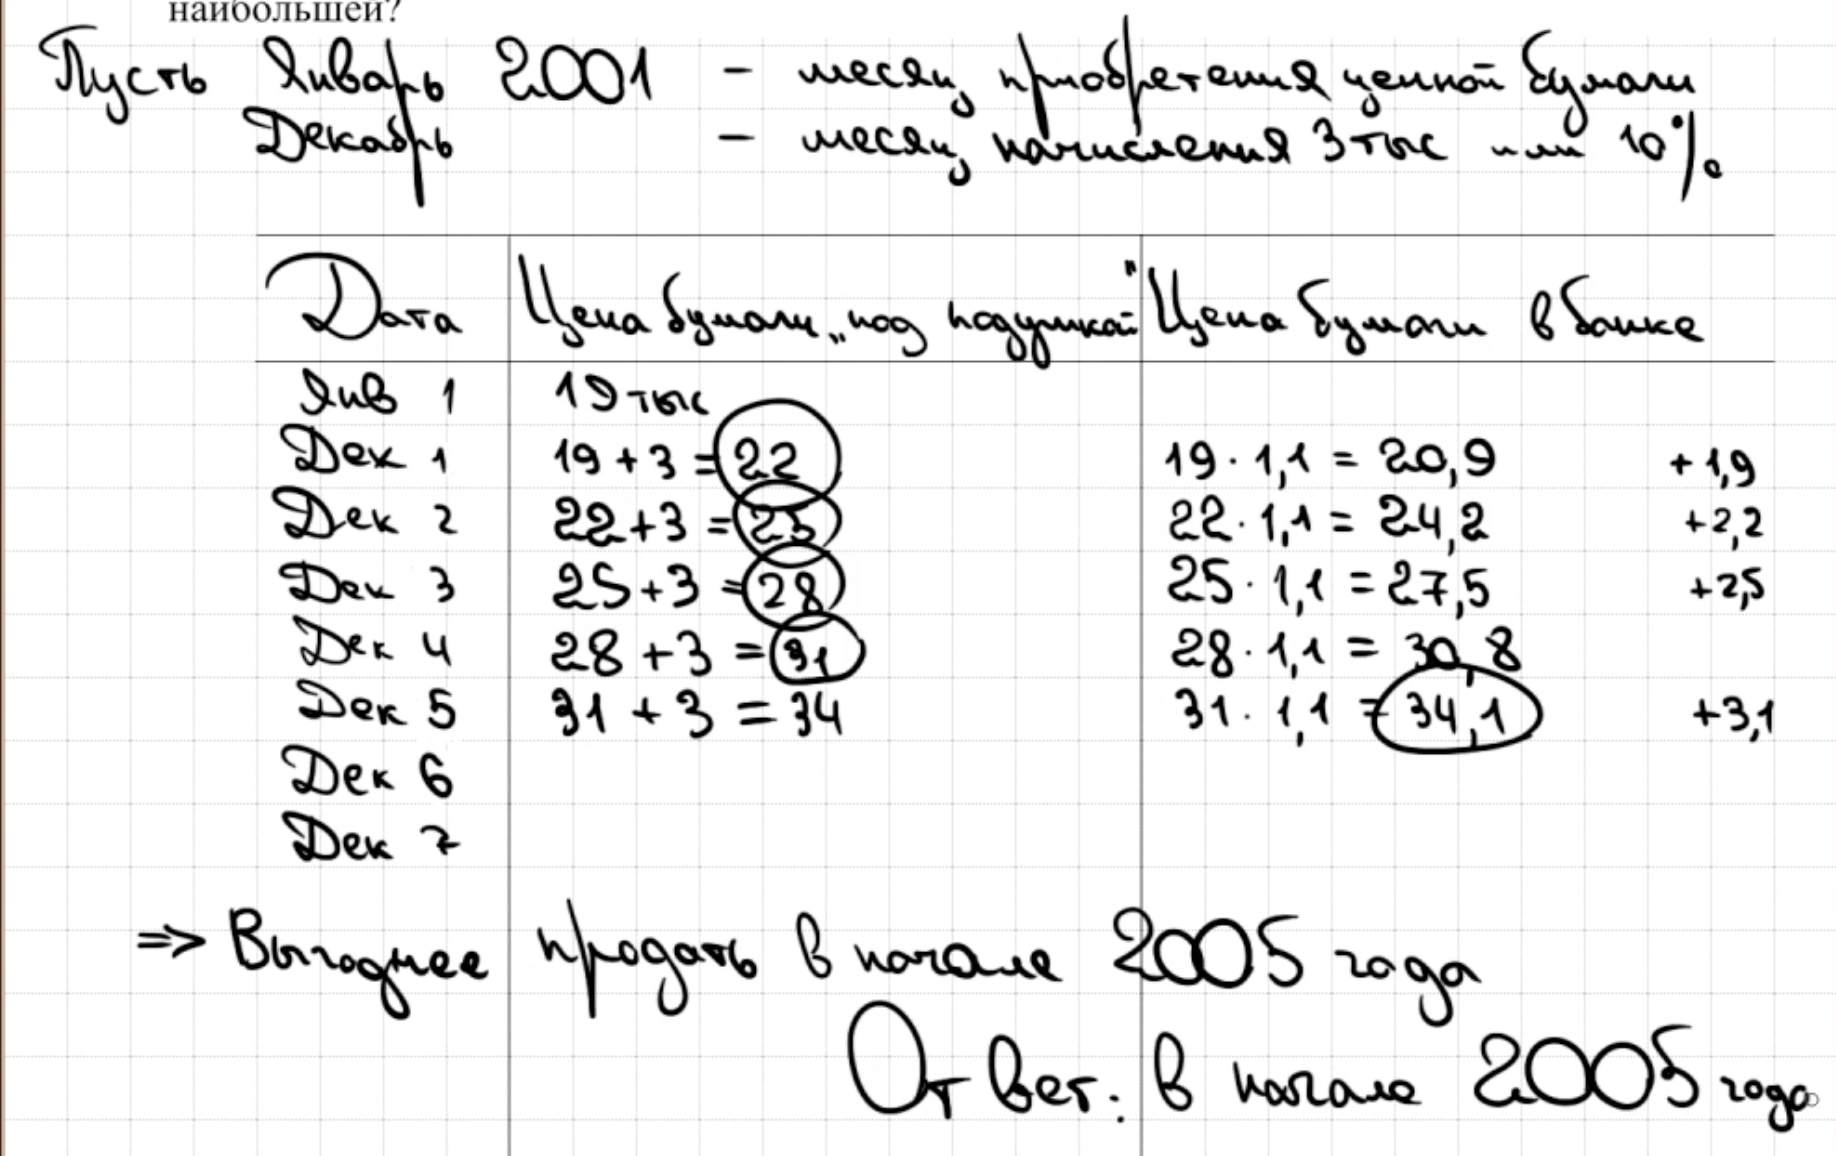 наибольшей?
Пусть Январь 2001 – месяц приобретения ценной бумаги
Декабрь – месяц начисления 3 тыс или 10%.
Дата Цена бумаги „под подушкой" Цена бумаги в банке
Янв 1 19 тыс
Дек 1 19 + 3 = 22 19 · 1,1 = 20,9 +1,9
Дек 2 22+3 = 25 22 · 1,1 = 24,2 +2,2
Дек 3 25+3 = 28 25 · 1,1 = 27,5 +2,5
Дек 4 28 + 3 = 31 28 · 1,1 = 30,8
Дек 5 31 + 3 = 34 31 · 1,1 = 34,1 +3,1
Дек 6
Дек 7
=> Выгоднее продать в начале 2005 года
Ответ: в начале 2005 года